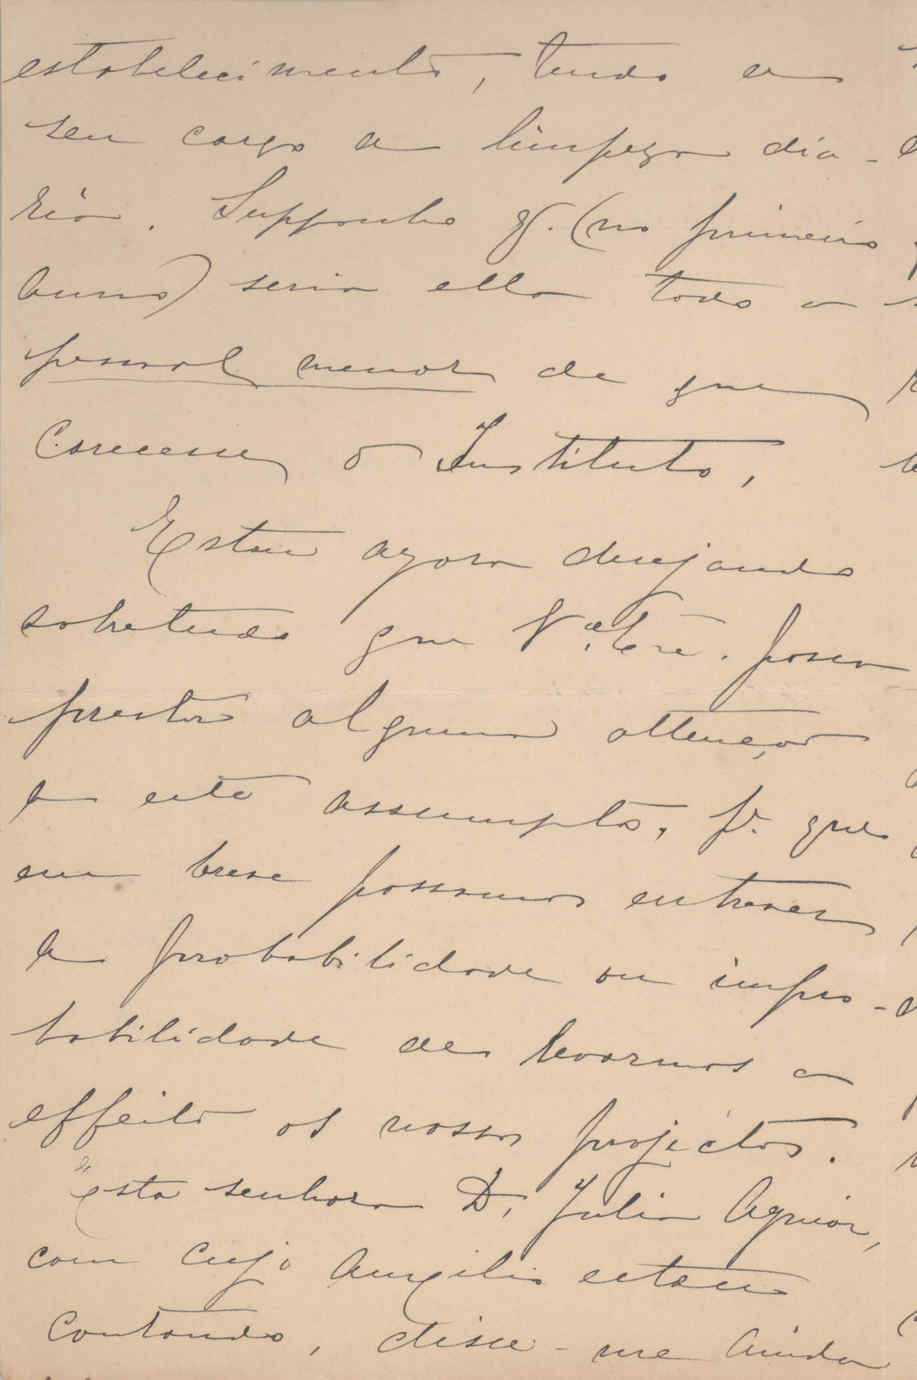 estabelecimento, tendo a
seu cargo a limpeza dia-
ria. Supponho q. (no primeiro
anno) seria ella todo o
pessoal menor de que
carecesse o Instituto,
Estou agora desejando
sobretudo que V.ª Exª. possa
prestar alguma attenção
a este assumpto, p.ª que
em breve possamos entrever
a probabilidade ou impro-
babilidade de levarmos a
effeito os nossos projéctos.
A esta senhora D. Julia Aguiar,
com cujo auxilio estou
contando, disse-me ainda